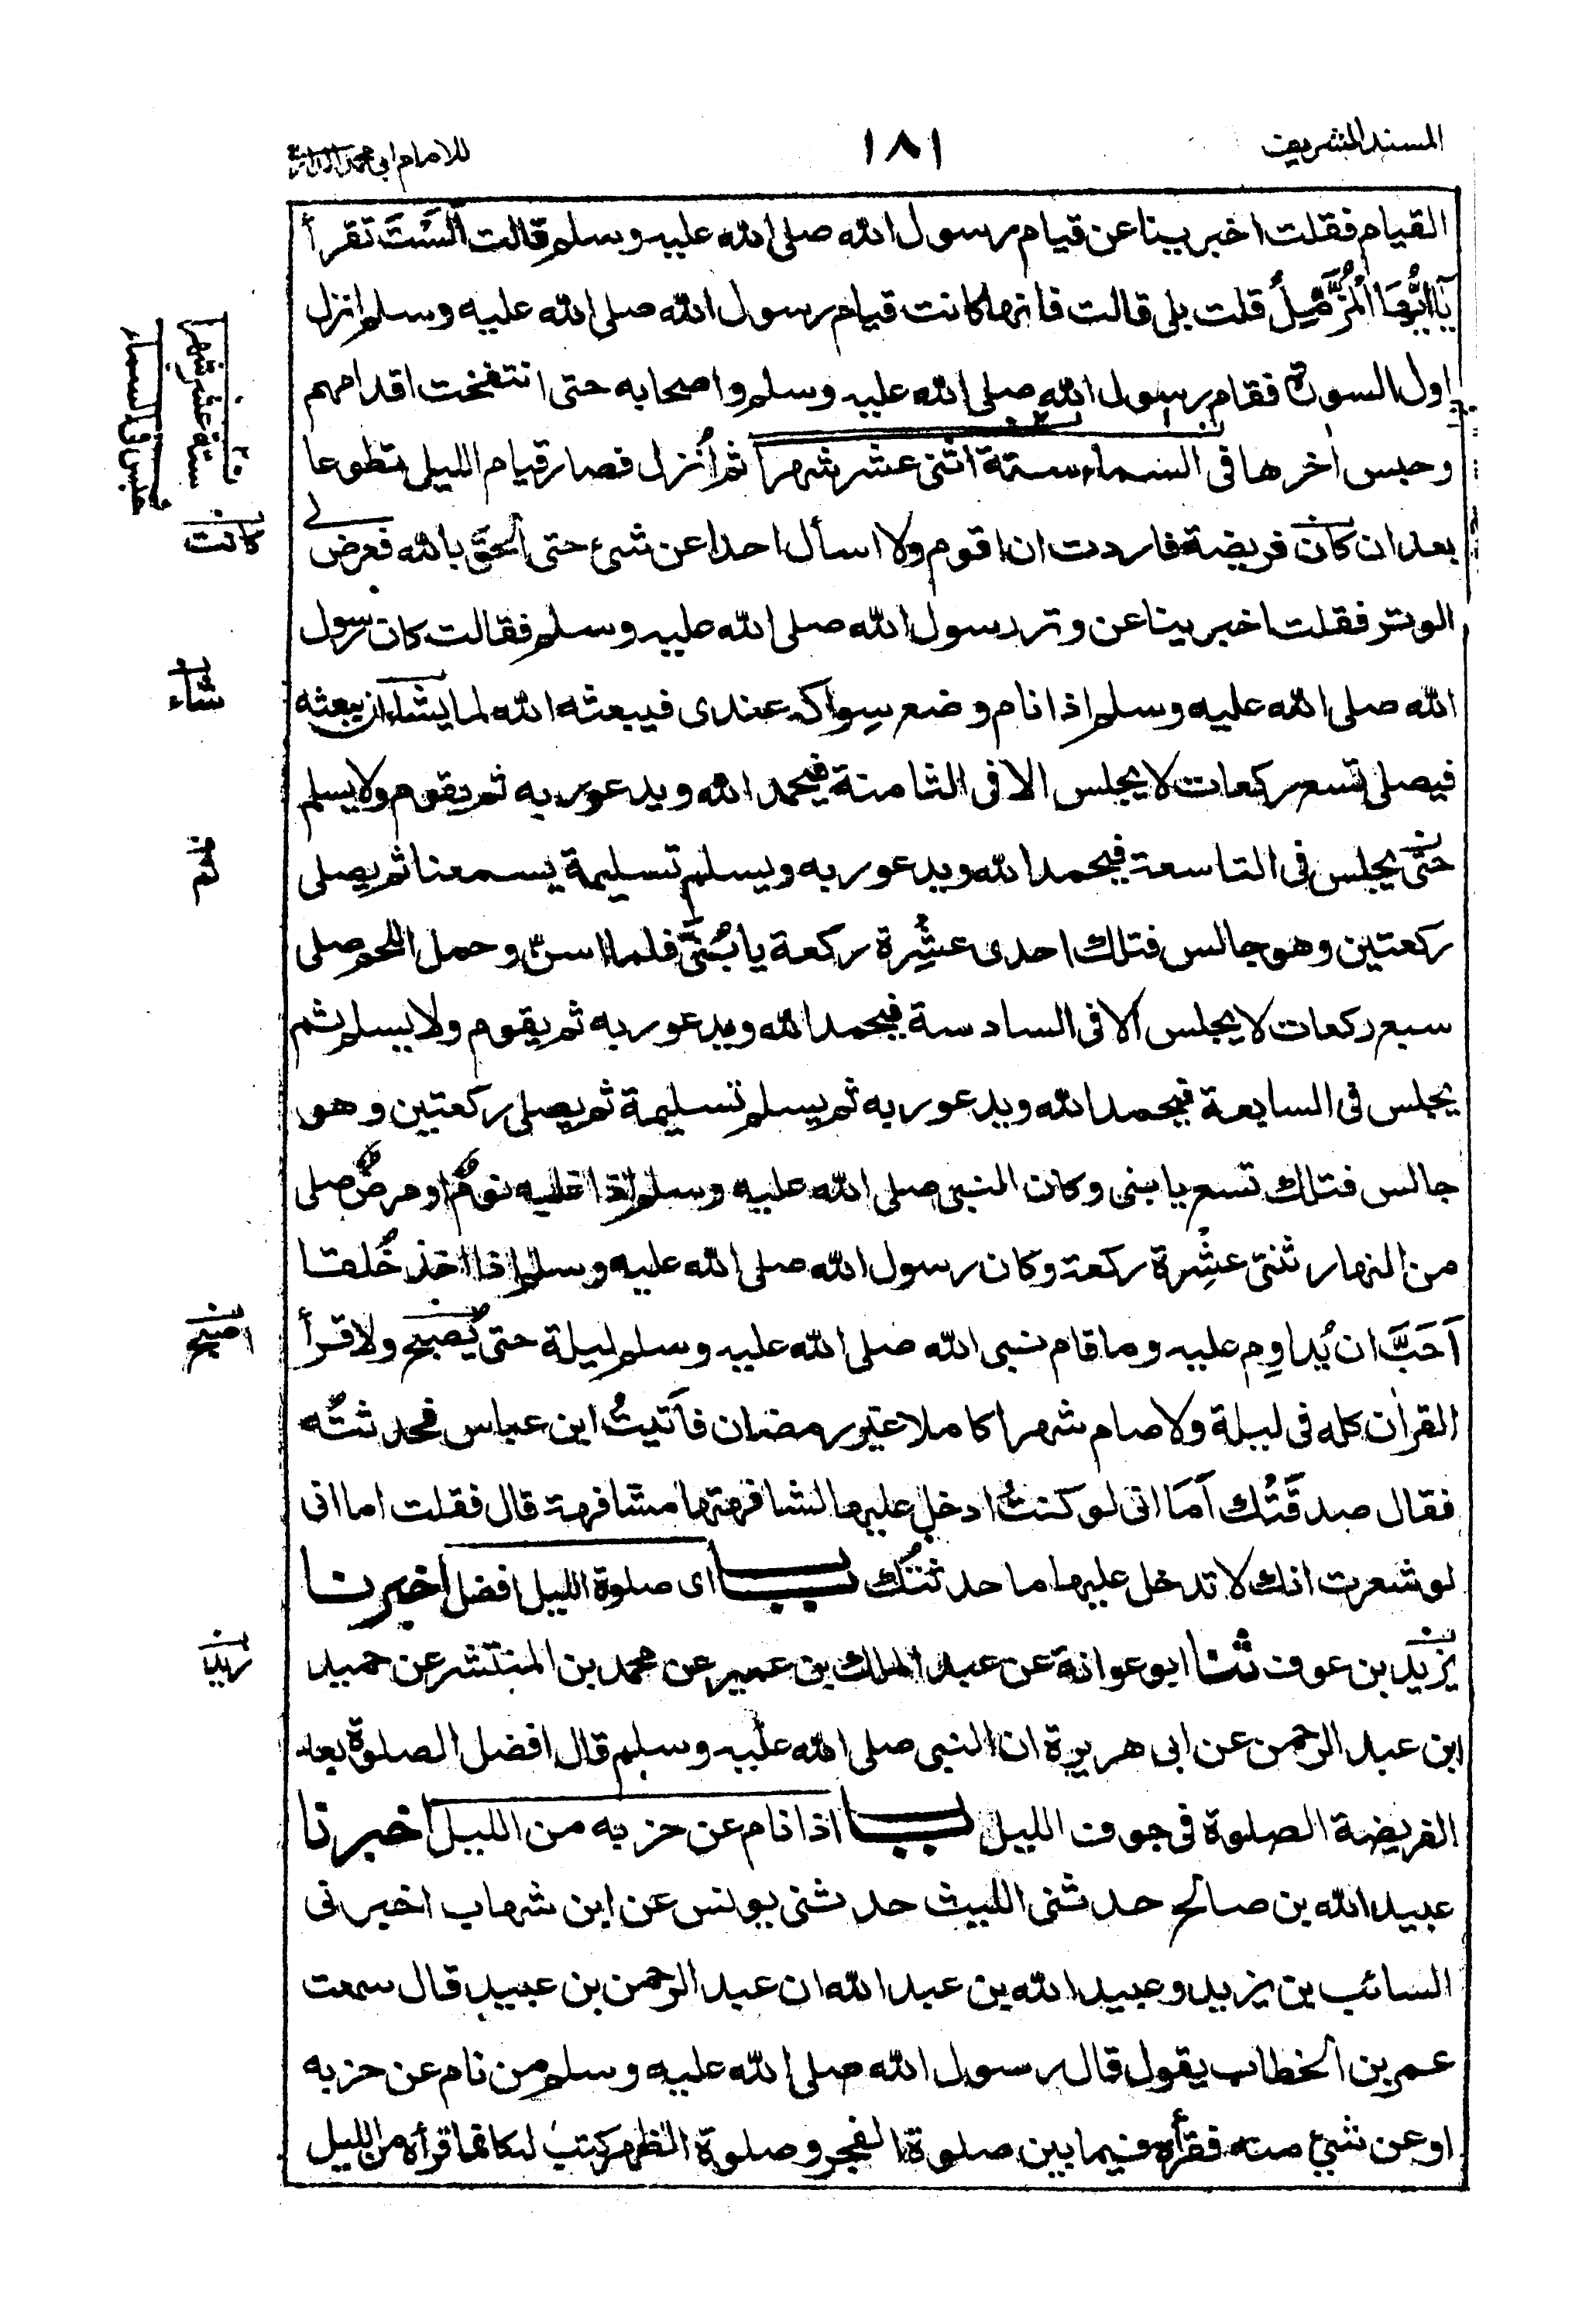 المسند الشريف
١٨١
للامام ابي محمد الدارمي
القيام فقلت اخبرينا عن قيام رسول الله صلى الله عليه وسلم قالت أَلَسْتَ تقرأ
يَا اَيُّهَا الْمُزَّمِّلُ قلت بلى قالت فانها كانت قيام رسول الله صلى الله عليه وسلم انزل
اول السورة فقام رسول الله صلى الله عليه وسلم واصحابه حتى انتفخت اقدامهم
وحبس اخرها فى السماء ستة اثنى عشر شهرا ثم أُنزل فصار قيام الليل تطوعا
بعد ان كان فريضة فاردت ان اقوم ولا اسأل احدا عن شئ حتى الحقَ بالله فعرض لى
الوتر فقلت اخبرينا عن وتر رسول الله صلى الله عليه وسلم فقالت كان رسول
الله صلى الله عليه وسلم اذا نام وضع سِواكه عندى فيبعثه الله لما يشاء ان يبعثه
فيصلى تسع ركعات لا يجلس الا فى الثامنة فيحمد الله ويدعو ربه ثم يقوم ولا يسلم
حتى يجلس فى التاسعة فيحمد الله ويدعو ربه ويسلم تسليمة يسمعنا ثم يصلى
ركعتين وهو جالس فتلك احدى عشِرة ركعة يا بُنَىَّ فلما اسنّ وحمل اللحم صلى
سبع ركعات لا يجلس الا فى السادسة فيحمد الله ويدعو ربه ثم يقوم ولا يسلم ثم
يجلس فى السابعة فيحمد الله ويدعو ربه ثم يسلم تسليمة ثم يصلى ركعتين وهو
جالس فتلك تسع يا بنى وكان النبى صلى الله عليه وسلم اذا غلبه نومٌ او مرضٌ صلى
من النهار ثنتى عشِرة ركعة وكان رسول الله صلى الله عليه وسلم اذا اخذ خُلقا
اَحَبَّ ان يُداوِم عليه وما قام نبى الله صلى الله عليه وسلم ليلة حتى يُصبح ولا قرأ
القراٰن كله فى ليلة ولا صام شهرا كاملا غير رمضان فاَتيتُ ابن عباس فحدثتُه
فقال صدقَتْك اَمَا انى لو كنتُ ادخل عليها لشافهتها مشافهة قال فقلت اما انى
لو شعرت انك لا تدخل عليها ما حدثتُك باب اى صلوة الليل افضل اخبرنا
يزيد بن عوف ثنا ابو عوانة عن عبد الملك بن عمير عن محمد بن المنتشر عن حميد
ابن عبد الرحمن عن ابى هريرة ان النبى صلى الله عليه وسلم قال افضل الصلوة بعد
الفريضة الصلوة فى جوف الليل باب اذا نام عن حزبه من الليل اخبرنا
عبيد الله بن صالح حدثنى الليث حدثنى يونس عن ابن شهاب اخبرنى
السائب بن يزيد وعبيد الله بن عبد الله ان عبد الرحمن بن عبيد قال سمعت
عمر بن الخطاب يقول قال رسول الله صلى الله عليه وسلم من نام عن حزبه
او عن شئ منه فقرأه فيما بين صلوة الفجر وصلوة الظهر كتب لكانما قرأه من الليل
ستة عشر شهرا
فحبس فى السماء
كانت
شاء
اصبح
زيد